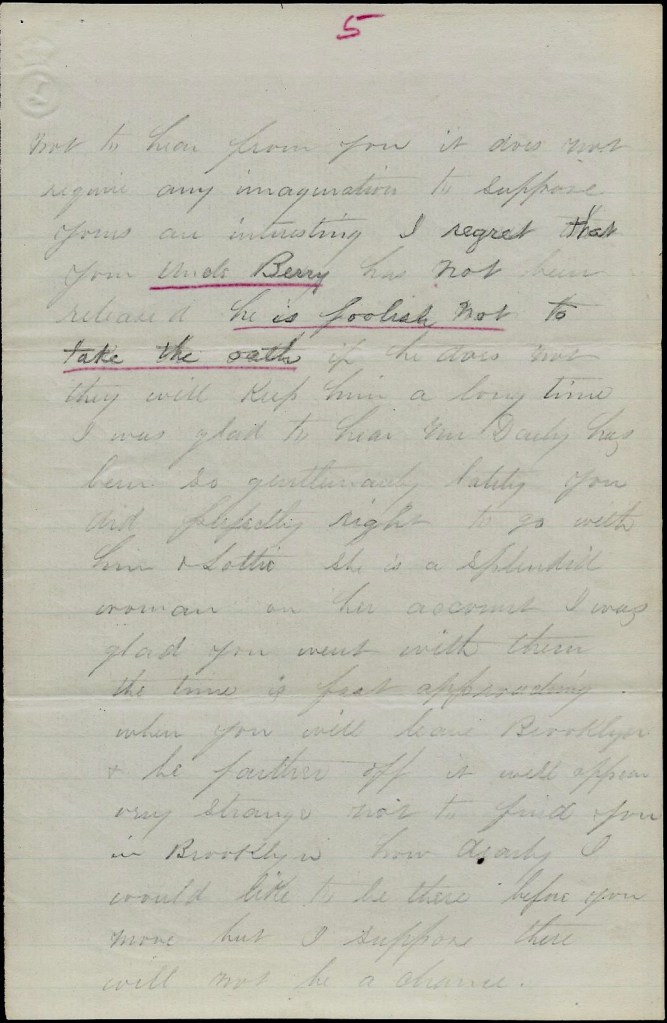 5
not to hear from you it does not
require any imagination to suppose
yours are interesting I regret that
your Uncle Berry has not been
released he is foolish not to
take the oath if he does not
they will keep him a long time
I was glad to hear Mr Darby has
been so gentlemanly lately you
did perfectly right to go with
him & Lottie she is a splendid
woman on her account I was
glad you went with them
the time is fast approaching
when you will leave Brooklyn
& be farther off it will appear
very strange not to find you
in Brooklyn how dearly I
would like to be there before you
move but I suppose there
will not be a chance.